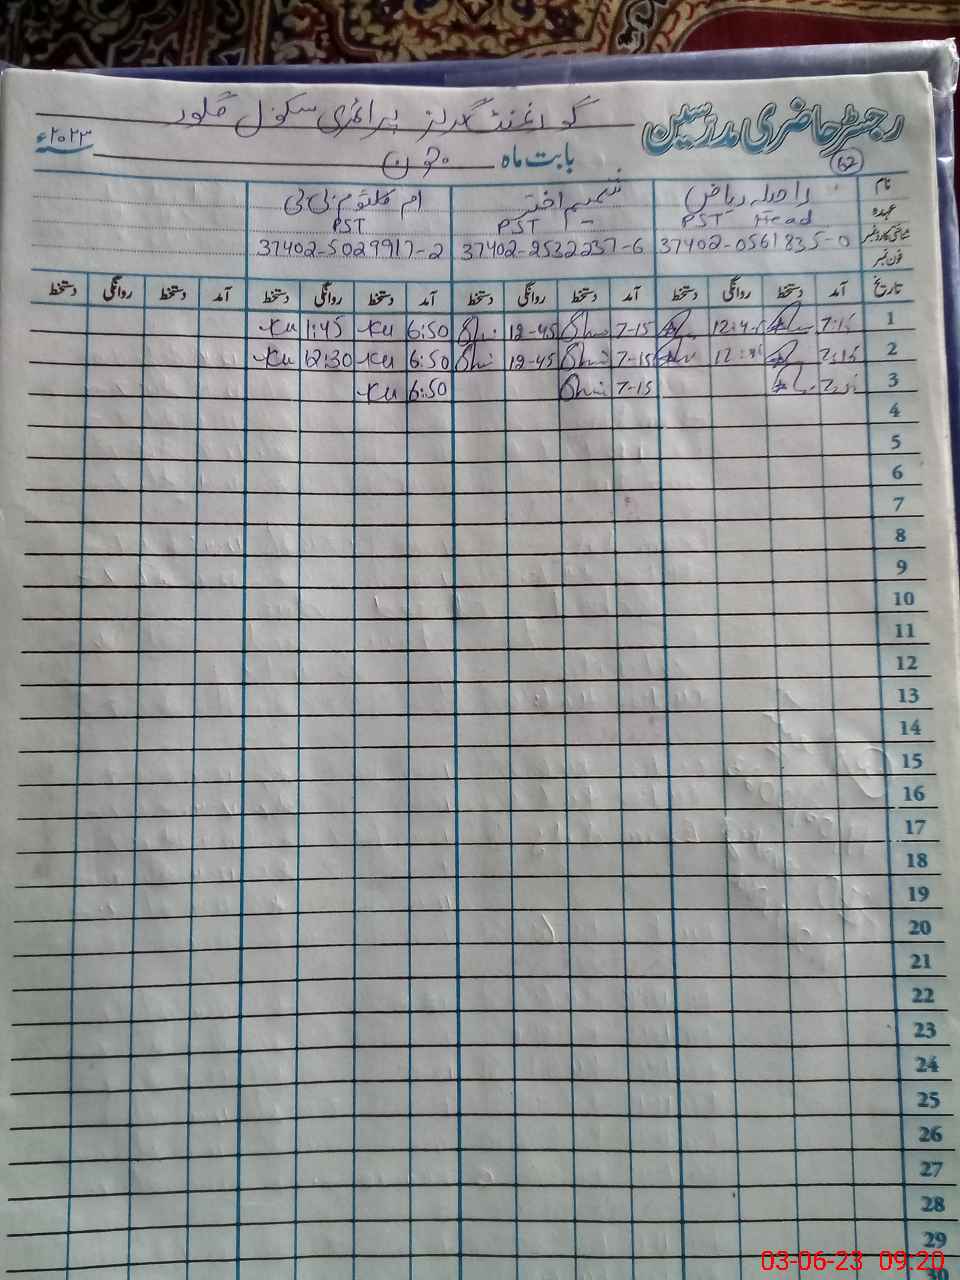 رجسٹر حاضری مدرسین گورنمنٹ گرلز پرائمری سکول
62
بابت ماہ جون ۲۰۲۳ء
نام راحیلہ ریاض شمیم اختر ام کلثوم بی بی
عہدہ PST Head PST PST
شناختی کارڈ نمبر 37402-0561835-0 37402-2532237-6 37402-5029917-2
فون نمبر
تاریخ آمد دستخط روانگی دستخط آمد دستخط روانگی دستخط آمد دستخط روانگی دستخط آمد دستخط روانگی دستخط
1 7:15 12:45 7-15 Shu 12-45 Shu 6:50 Ku 1:45 Ku
2 7:15 12:45 7-15 Shu 12-45 Shu 6:50 Ku 12:30 Ku
3 7:15 7-15 Shu 6:50 Ku
4
5
6
7
8
9
10
11
12
13
14
15
16
17
18
19
20
21
22
23
24
25
26
27
28
29
30
03-06-23 09:20